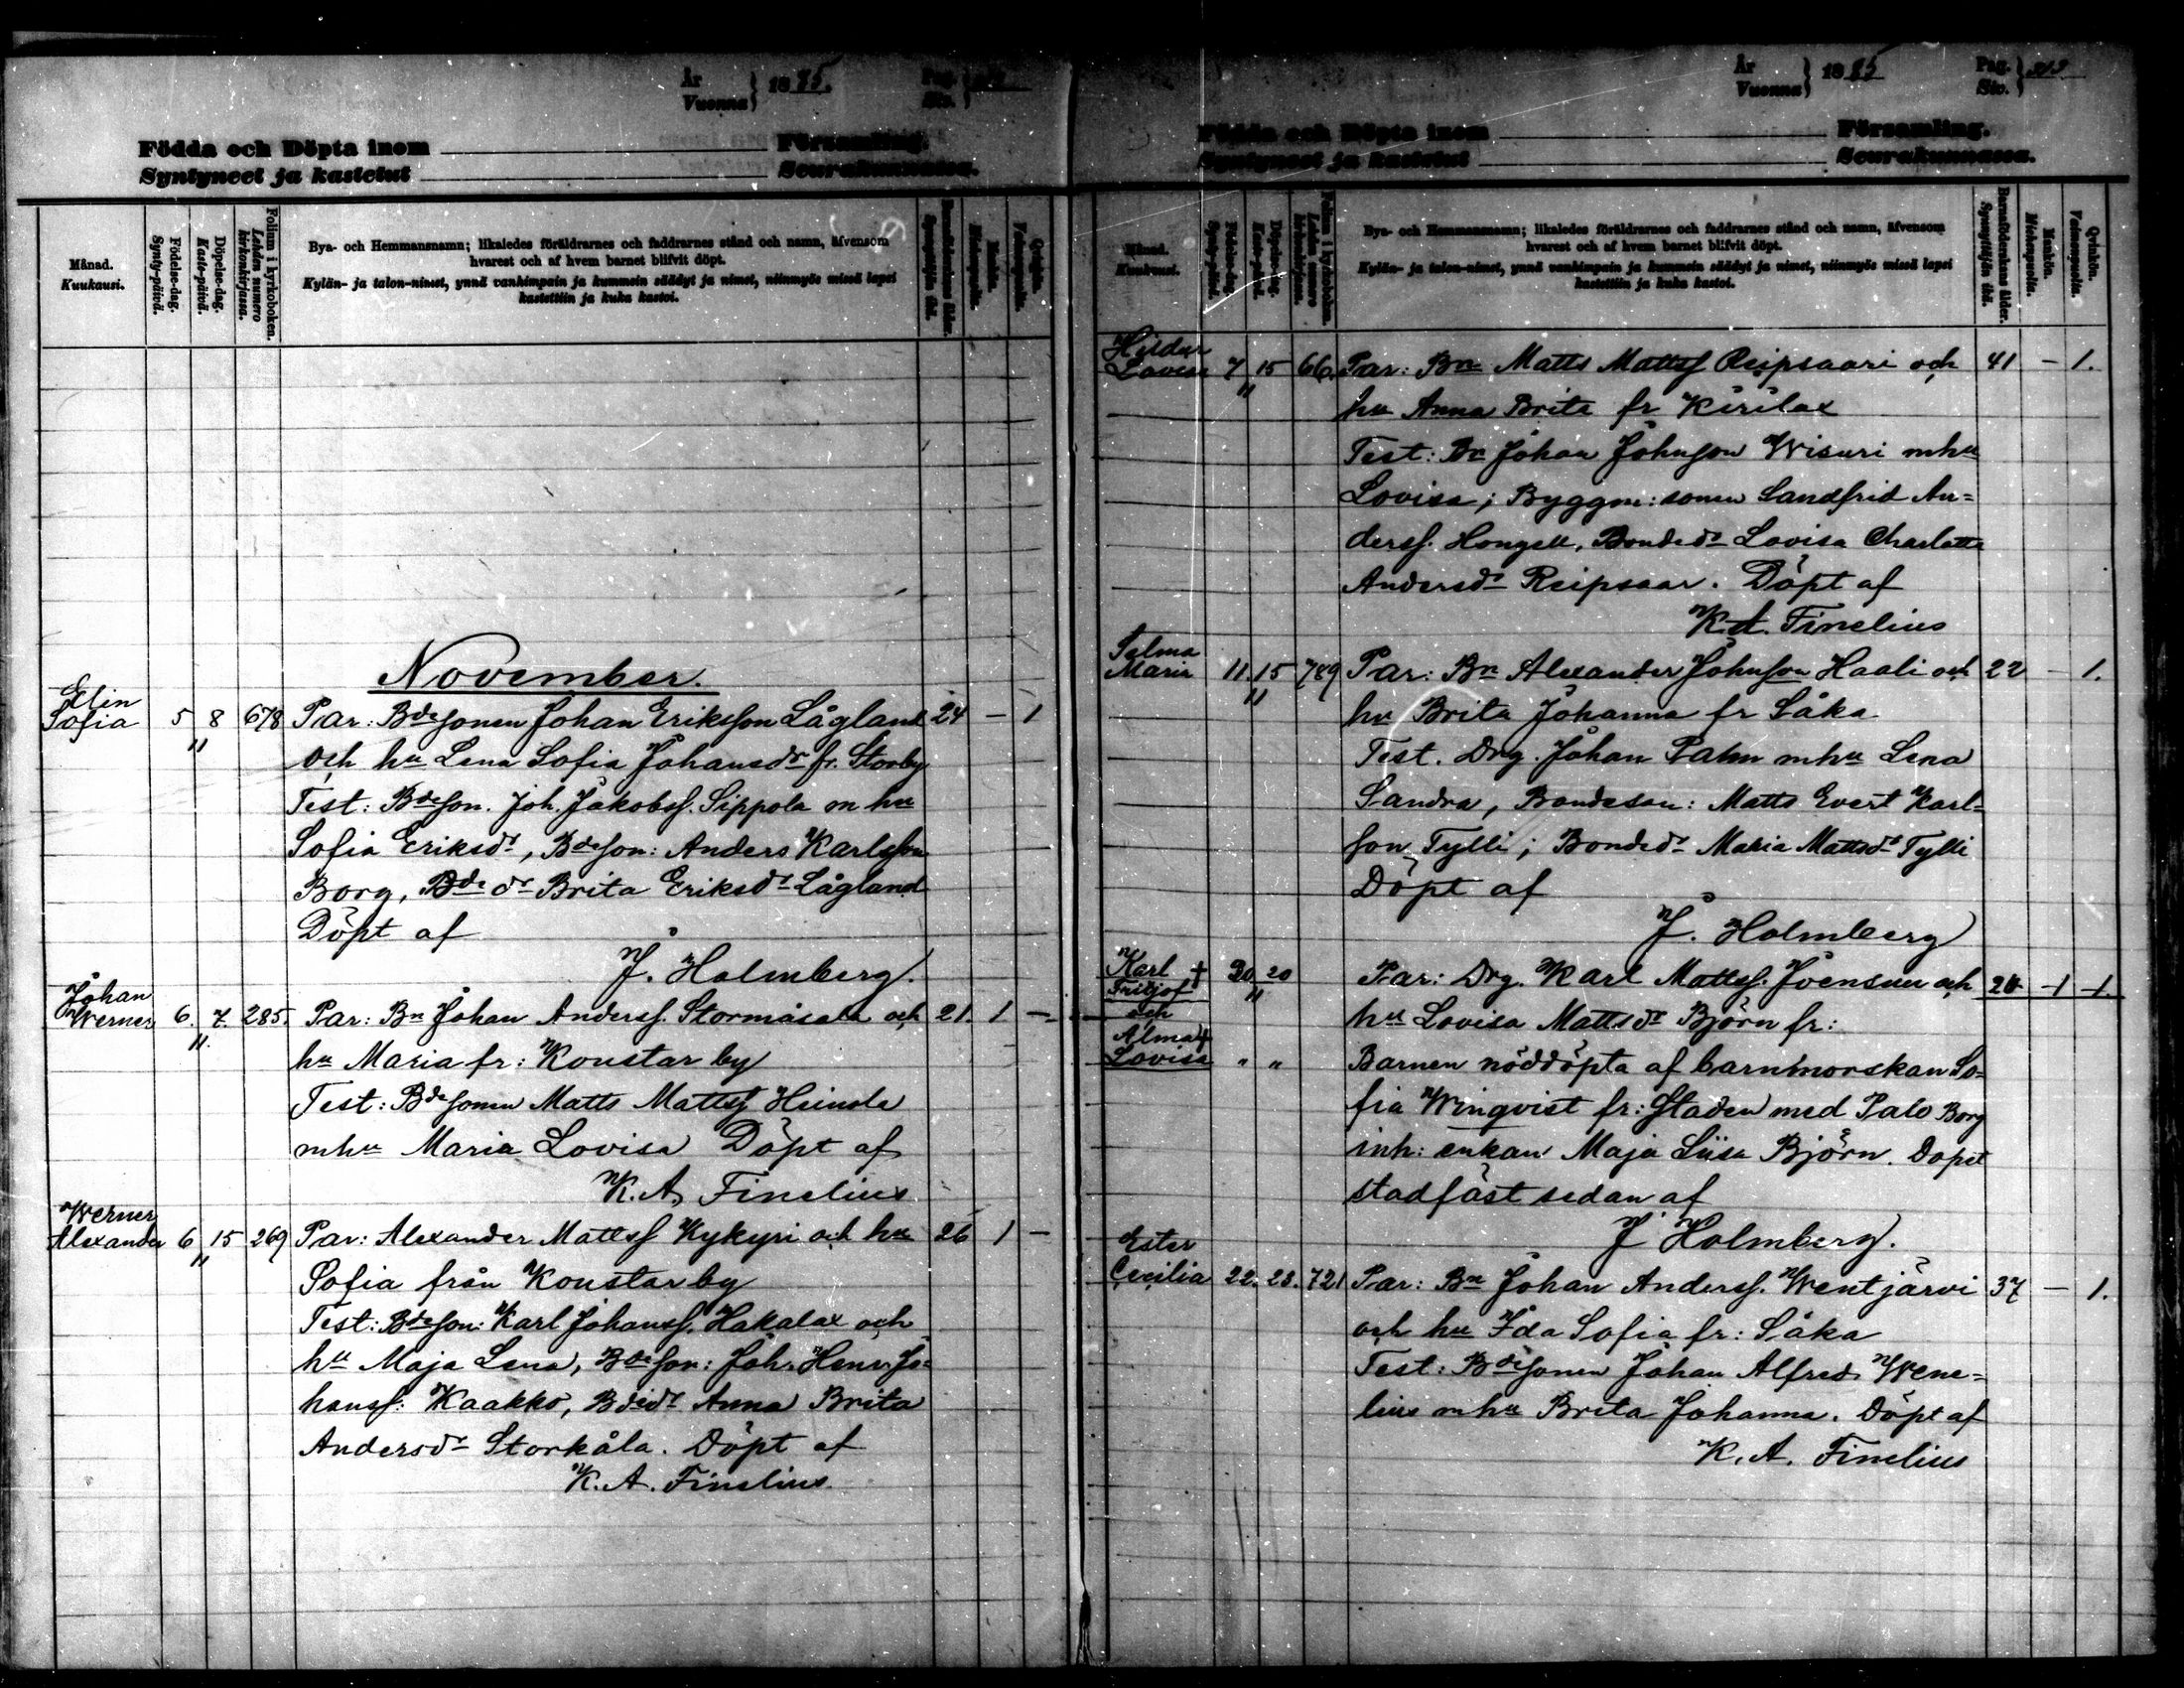 År
Vuonna } 1885.
Pag.
Siv. }
Födda och Döpta inom Församling.
Syntyneet ja kastetut Seurakunnassa.
Månad.
Kuukausi.
Födelse-dag.
Synty-päivä.
Döpelse-dag.
Kaste-päivä.
Folium i kyrkoboken.
Lehden numero
kirkonkirjassa.
Bya- och Hemmansnamn; likaledes föräldrarnes och faddrarnes stånd och namn, äfvensom
hvarest och af hvem barnet blifvit döpt.
Kylän- ja talon-nimet, ynnä vanhimpain ja kummein säädyt ja nimet, niinmyös missä lapsi
kastettiin ja kuka kastoi.
Barnaföderskans ålder.
Synnyttäjän ikä.
Mankön.
Miehenpuolia.
Qvinkön.
Vaimonpuolia.
November.
Elin
Sofia 5 8 678 Par: Bdesonen Johan Eriksson Lågland 24 – 1
"
och hu Lena Sofia Johansdr fr. Storby
Test: Bdeson. Joh. Jakobss. Sippola m hu
Sofia Eriksdr, Bdeson: Anders Karlsson
Borg, Bde dr Brita Eriksdr Lågland
Döpt af
J. Holmberg.
Johan
Werner 6. 7. 285. Par: Bn Johan Anderss. Stormåsala och 21. 1 –
"
hu Maria fr: Koustar by
Test: Bdesonen Matts Mattss Heinola
mhu Maria Lovisa Döpt af
K. A. Finelius
Werner
Alexander 6 15 269 Par: Alexander Mattss Kykyri och hu 26 1 –
"
Sofia från Koustar by
Test: Bdeson: Karl Johanss. Hakalax och
hu Maja Lena, Bdeson: Joh. Henr. Jo=
hanss: Kaakko, Bdedr Anna Brita
Andersdr Storkåla. Döpt af
K. A. Finelius.
År
Vuonna } 1885
Pag.
Siv. }
Födda och Döpta inom Församling.
Syntyneet ja kastetut Seurakunnassa.
Månad.
Kuukausi.
Födelse-dag.
Synty-päivä.
Döpelse-dag.
Kaste-päivä.
Folium i kyrkoboken.
Lehden numero
kirkonkirjassa.
Bya- och Hemmansnamn; likaledes föräldrarnes och faddrarnes stånd och namn, äfvensom
hvarest och af hvem barnet blifvit döpt.
Kylän- ja talon-nimet, ynnä vanhimpain ja kummein säädyt ja nimet, niinmyös missä lapsi
kastettiin ja kuka kastoi.
Barnaföderskans ålder.
Synnyttäjän ikä.
Mankön.
Miehenpuolia.
Qvinkön.
Vaimonpuolia.
Hildur
Lovisa 7 15 66. Par: Bn Matts Mattss Reipsaari och 41 – 1.
"
hu Anna Brita fr Kirilax
Test: Bn Johan Johnsson Wisuri mhu
Lovisa; Byggm: sonen Sandfrid An=
derss. Hongell, Bondedr Lovisa Charlotta
Andersdr Reipsaar. Döpt af
K. A. Finelius
Selma
Maria 11. 15 789 Par: Bn Alexander Johnsson Haali och 22 – 1.
"
hu Brita Johanna fr Såka
Test. Drg. Johan Palm mhu Lena
Sandra, Bondeson: Matts Evert Karl=
son Tylli; Bondedr Maria Mattsdr Tylli
Döpt af
J. Holmberg
Karl +
Fritjof 20 20 Par: Drg. Karl Mattss. Joensuu och 20 1 1.
"
och
Alma +
Lovisa " "
hu Lovisa Mattsdr Björn fr:
Barnen nöddöpta af barnmorskan So=
fia Winqvist fr: staden med Palo Borg
inh: enkan Maja Liisa Björn. Dopet
stadfäst sedan af
J Holmberg.
Ester
Cecilia 22. 23. 721 Par: Bn Johan Anderss. Wentjärvi 37 – 1.
och hu Ida Sofia fr: Såka
Test: Bdesonen Johan Alfred Wene=
lius mhu Brita Johanna. Döpt af
K. A. Finelius